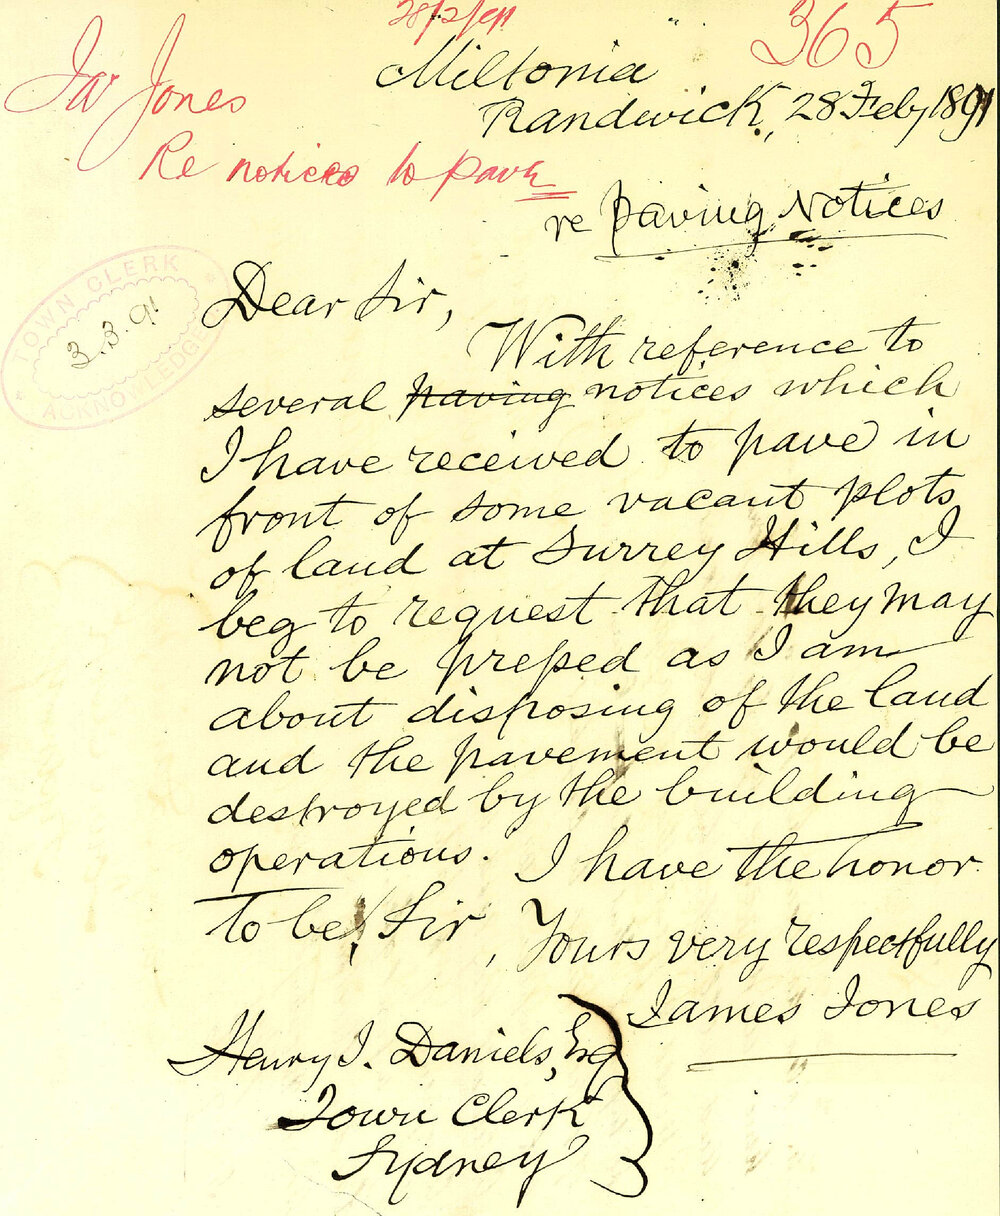 28/2/91
365
Jas Jones
Miltonia
Randwick, 28 Feby 1891
Re notices to pave
re Paving Notices
TOWN CLERK
3.3.91
ACKNOWLEDGED
Dear Sir,
With reference to
several paving notices which
I have received to pave in
front of some vacant plots
of land at Surrey Hills, I
beg to request that they may
not be pressed as I am
about disposing of the land
and the pavement would be
destroyed by the building
operations. I have the honor
to be, Sir, Yours very respectfully
James Jones
Henry J. Daniels, Esq
Town Clerk
Sydney